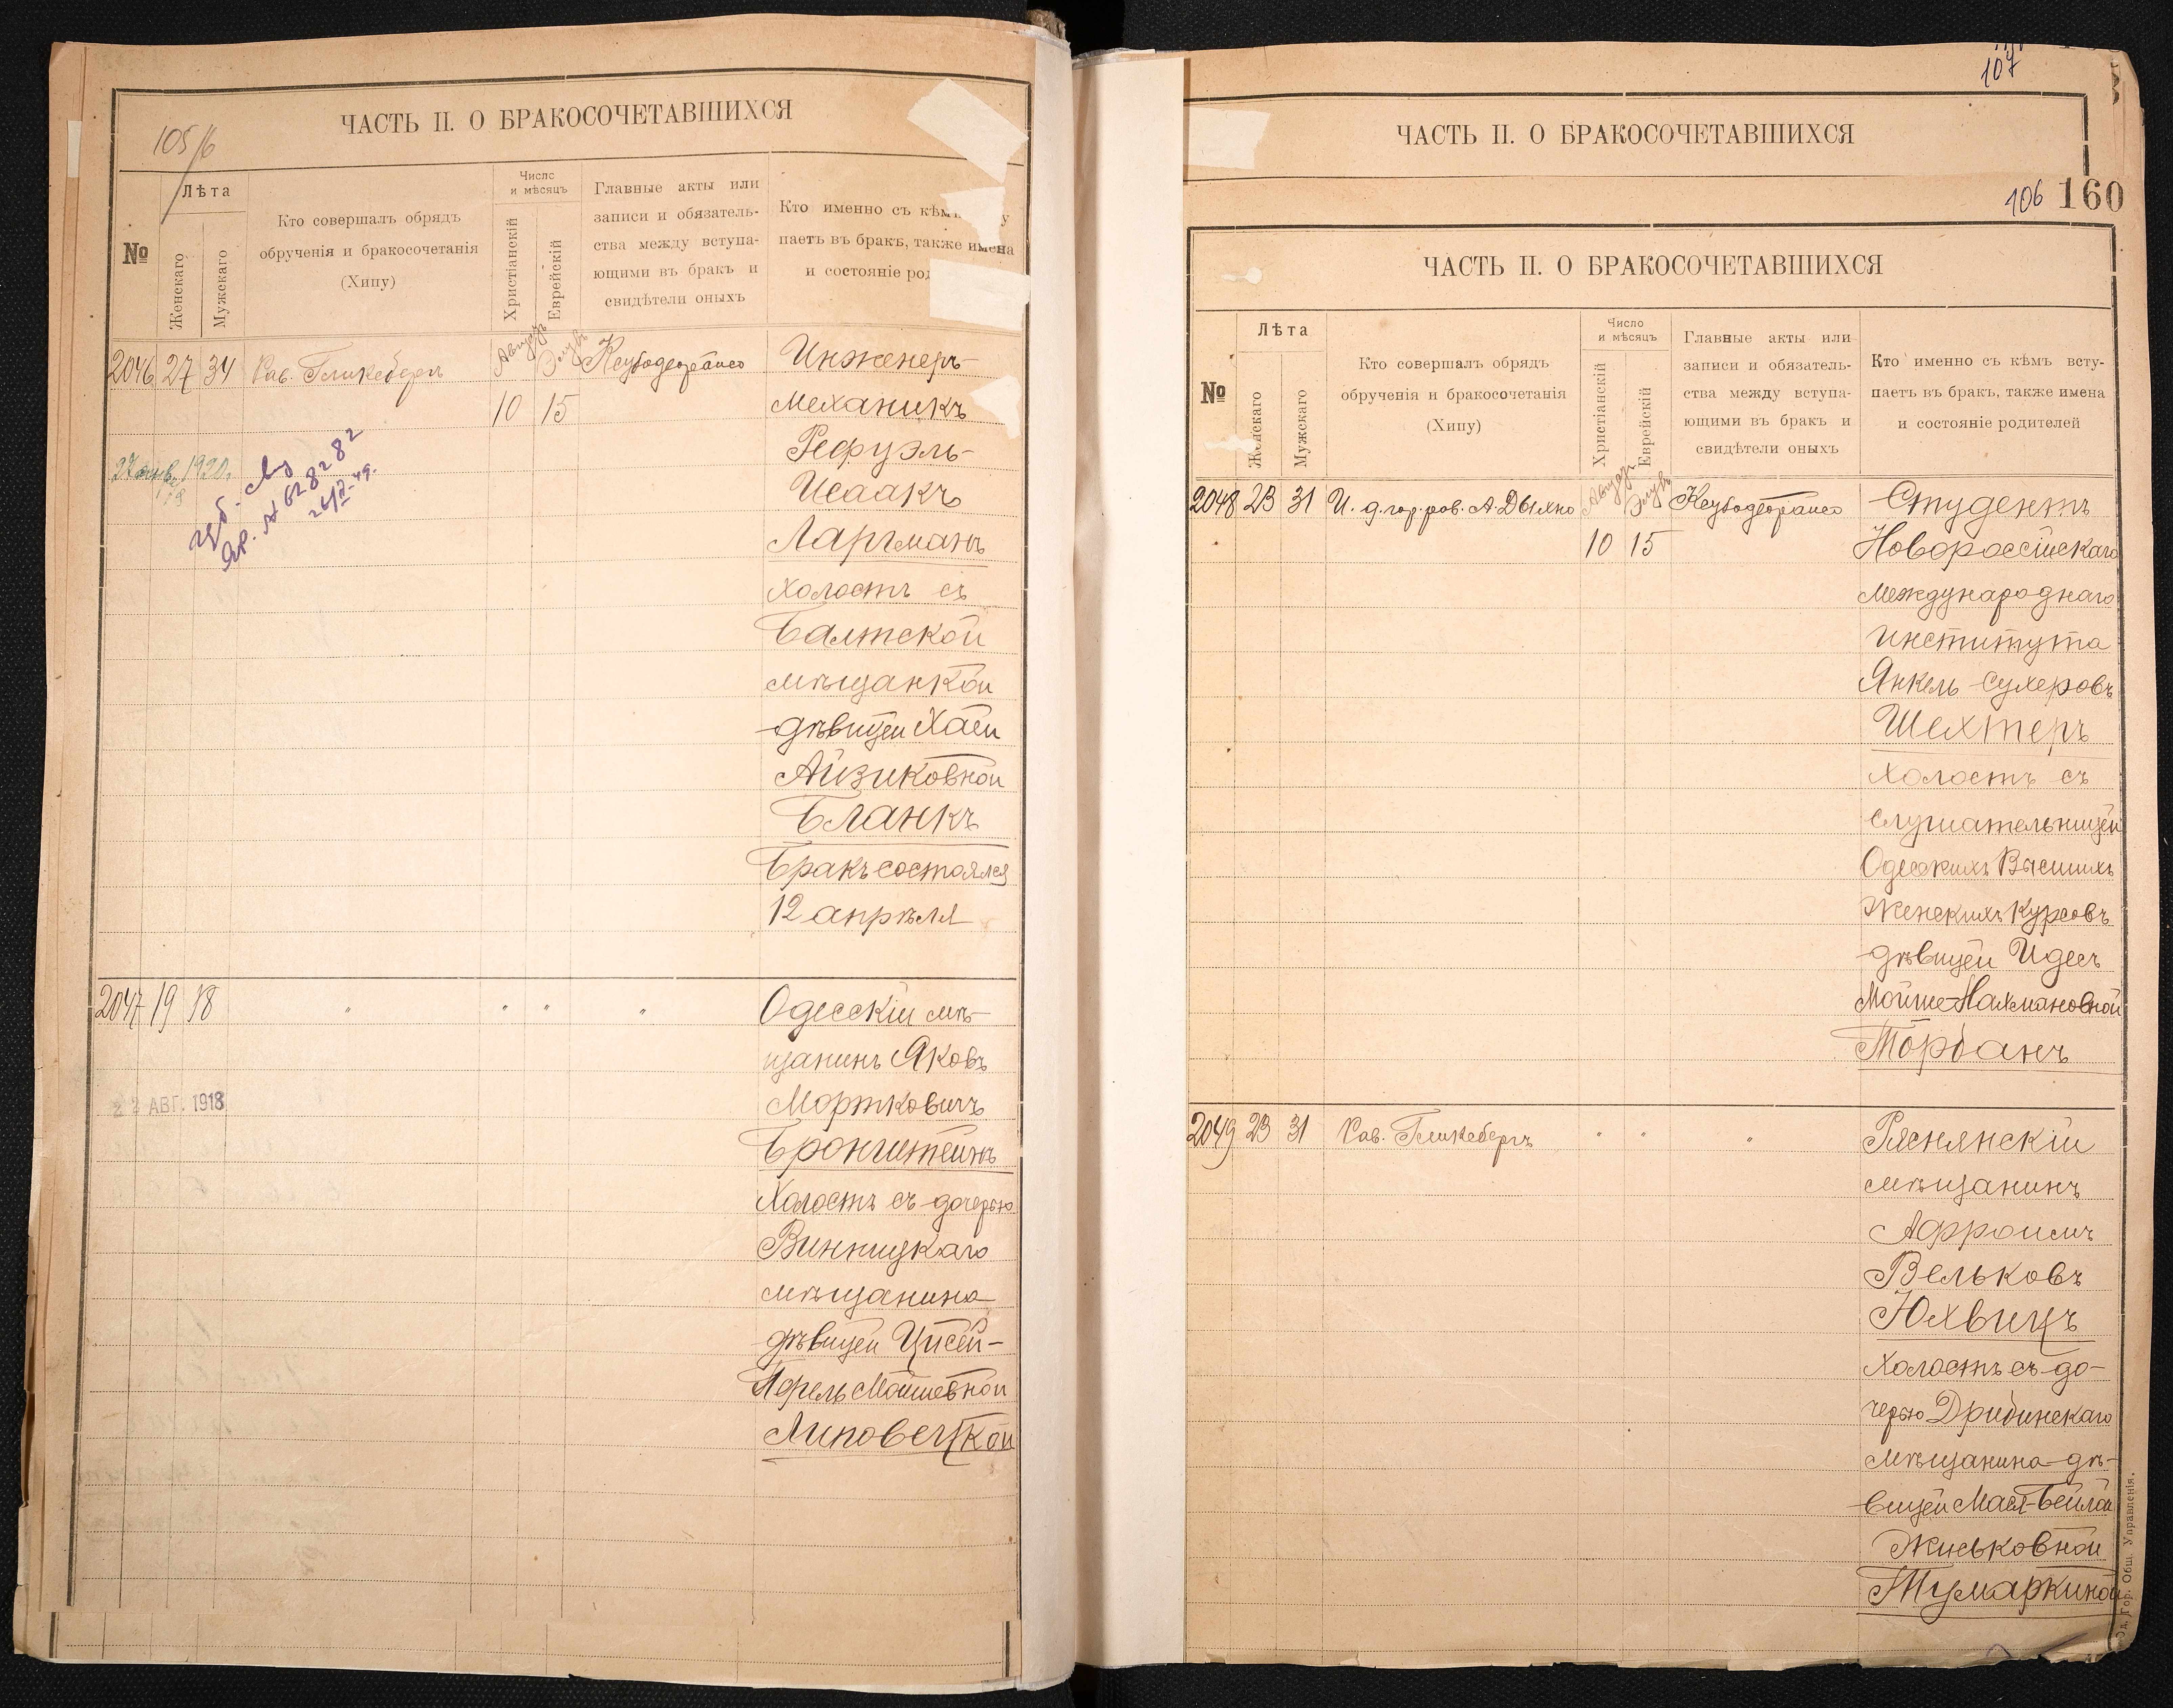 ЧАСТЬ II. О БРАКОСОЧЕТАВШИХСЯ
105/6
№
Лѣта
Женскаго
Мужскаго
Кто совершалъ обрядъ
обрученія и бракосочетанія
(Хипу)
Число
и мѣсяцъ
Христіанскій
Еврейскій
Главные акты или
записи и обязатель-
ства между вступа-
ющими въ бракъ и
свидѣтели оныхъ
Кто именно съ
паетъ въ бракъ, также имена
и состояніе
2046 27 34 Рав. Гликсбергъ Августъ Элувъ Ксубодеорайсо Инженеръ-
10 15 механикъ
Рефуэль-
Исаакъ
Ларгманъ
холостъ съ
Балтской
мѣщанкой
дѣвицей Хаей
Айзиковной
Бланкъ
Бракъ состоялся
12 апрѣля
1920
№ 628282
2047 19 18 " " " " Одесскій мѣ-
щанинъ Яковъ
Мортковичъ
Бронштейнъ
Холостъ съ дочерью
Винницкаго
мѣщанина
дѣвицей Ципсей-
Перель Мошевной
Липовецкой
22 АВГ. 1918
107
ЧАСТЬ II. О БРАКОСОЧЕТАВШИХСЯ
106 160
ЧАСТЬ II. О БРАКОСОЧЕТАВШИХСЯ
№
Лѣта
Женскаго
Мужскаго
Кто совершалъ обрядъ
обрученія и бракосочетанія
(Хипу)
Число
и мѣсяцъ
Христіанскій
Еврейскій
Главные акты или
записи и обязатель-
ства между вступа-
ющими въ бракъ и
свидѣтели оныхъ
Кто именно съ кѣмъ всту-
паетъ въ бракъ, также имена
и состояніе родителей
2048 23 31 И. д. гор. рав. А. Дыхно Августъ Элувъ Ксубодеорайсо Студентъ
10 15 Новороссійскаго
Международнаго
Института
Янкель Сухеровъ
Шехтеръ
холостъ съ
слушательницей
Одесскихъ Высшихъ
Женскихъ Курсовъ
дѣвицей Идесъ
Мойше-Нахмановной
Торбанъ
2049 23 31 Рав. Гликсбергъ " " " Ряснянскій
мѣщанинъ
Афроимъ
Вельковъ
Юхвицъ
холостъ съ до-
черью Дрибинскаго
мѣщанина дѣ-
вицей Масей-Бейлой
Жиськовной
Тумаркиной
Од. Гор. Общ. Управленія.